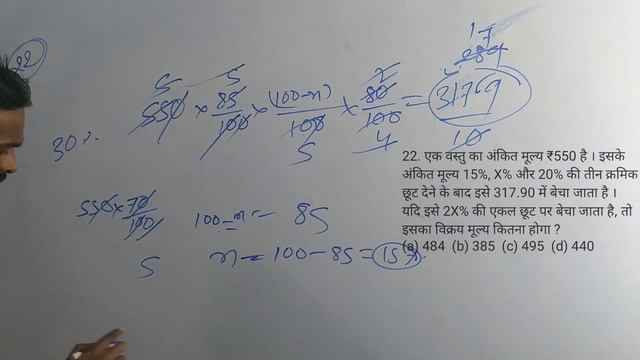 22
550 × 85/100 × (100-x)/100 × 80/100 = 31769/10
5 5 5 4
17
289
30%
550×70/100
100-x = 85
5
x = 100-85 = 15%
22. एक वस्तु का अंकित मूल्य ₹550 है । इसके
अंकित मूल्य 15%, X% और 20% की तीन क्रमिक
छूट देने के बाद इसे 317.90 में बेचा जाता है ।
यदि इसे 2X% की एकल छूट पर बेचा जाता है, तो
इसका विक्रय मूल्य कितना होगा ?
(a) 484 (b) 385 (c) 495 (d) 440